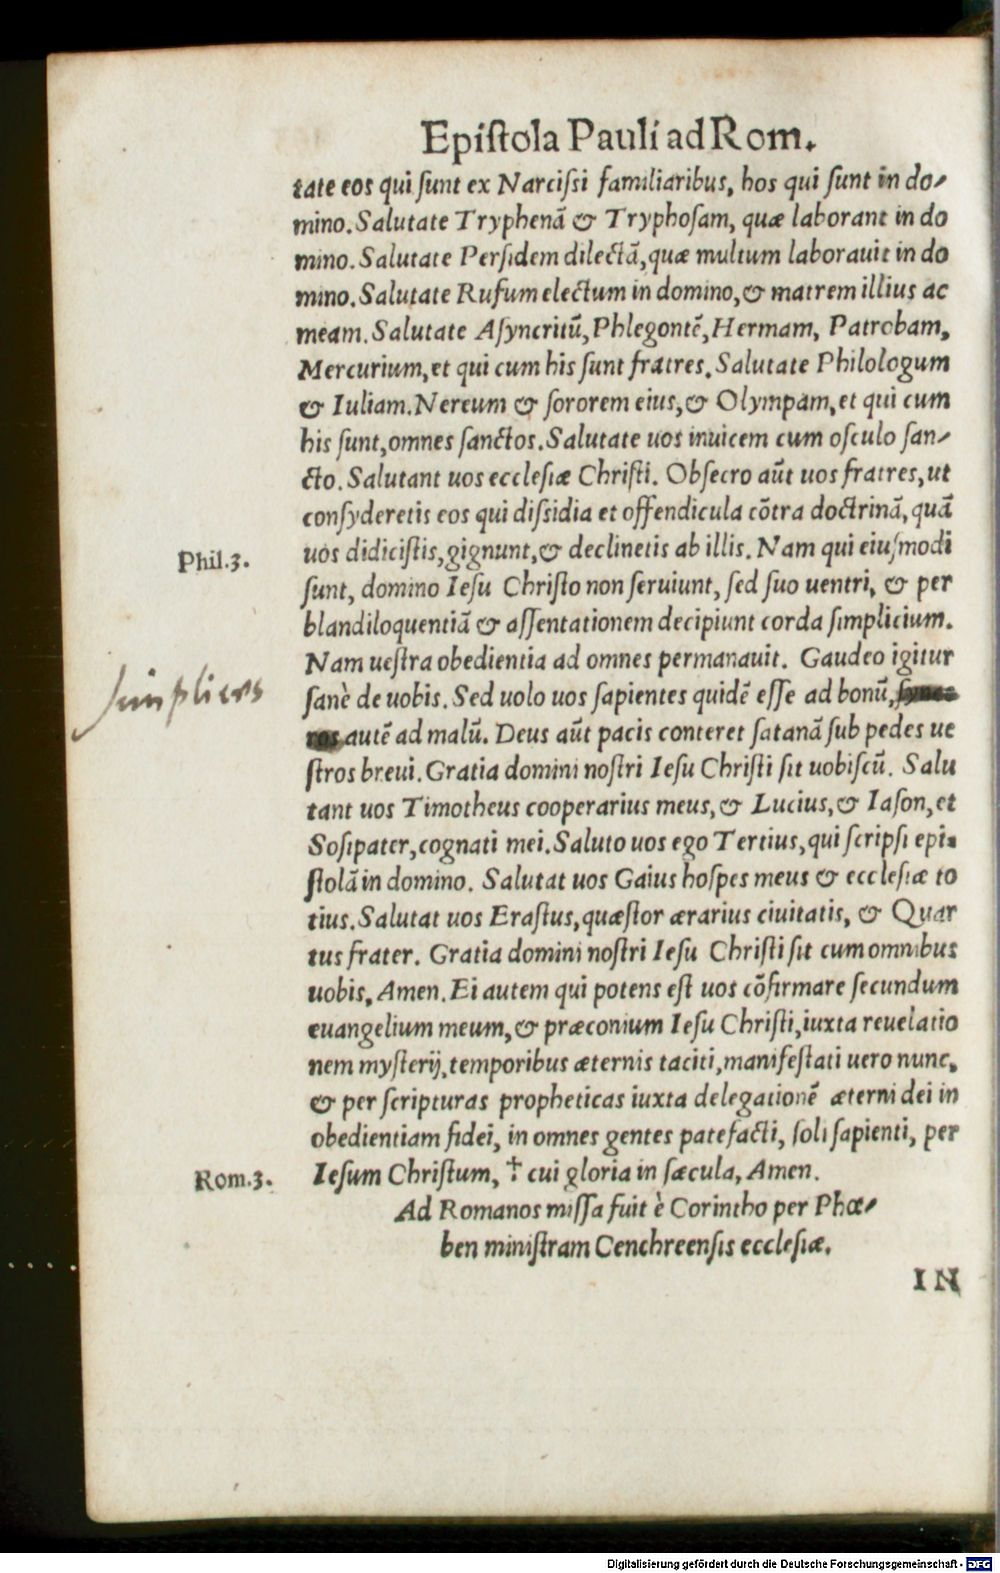 Epistola Pauli ad Rom.
tate eos qui sunt ex Narcissi familiaribus, hos qui sunt in do-
mino. Salutate Tryphenā & Tryphosam, quæ laborant in do
mino. Salutate Persidem dilectā, quæ multum laborauit in do
mino. Salutate Rufum electum in domino, & matrem illius ac
meam. Salutate Asyncritū, Phlegontē, Hermam, Patrobam,
Mercurium, et qui cum his sunt fratres. Salutate Philologum
& Iuliam. Nereum & sororem eius, & Olympam, et qui cum
his sunt, omnes sanctos. Salutate uos inuicem cum osculo san-
cto. Salutant uos ecclesiæ Christi. Obsecro aūt uos fratres, ut
consyderetis eos qui dissidia et offendicula cōtra doctrinā, quā
Phil.3. uos didicistis, gignunt, & declinetis ab illis. Nam qui eiusmodi
sunt, domino Iesu Christo non seruiunt, sed suo uentri, & per
blandiloquentiā & assentationem decipiunt corda simplicium.
Nam uestra obedientia ad omnes permanauit. Gaudeo igitur
simplices sanè de uobis. Sed uolo uos sapientes quidē esse ad bonū,
autē ad malū. Deus aūt pacis conteret satanā sub pedes ue
stros breui. Gratia domini nostri Iesu Christi sit uobiscū. Salu
tant uos Timotheus cooperarius meus, & Lucius, & Iason, et
Sosipater, cognati mei. Saluto uos ego Tertius, qui scripsi epi-
stolā in domino. Salutat uos Gaius hospes meus & ecclesiæ to
tius. Salutat uos Erastus, quæstor ærarius ciuitatis, & Quar
tus frater. Gratia domini nostri Iesu Christi sit cum omnibus
uobis, Amen. Ei autem qui potens est uos cōfirmare secundum
euangelium meum, & præconium Iesu Christi, iuxta reuelatio
nem mysterij, temporibus æternis taciti, manifestati uero nunc,
& per scripturas propheticas iuxta delegationē æterni dei in
obedientiam fidei, in omnes gentes patefacti, soli sapienti, per
Rom.3. Iesum Christum, † cui gloria in sæcula, Amen.
Ad Romanos missa fuit è Corintho per Phœ-
ben ministram Cenchreensis ecclesiæ.
IN
Digitalisierung gefördert durch die Deutsche Forschungsgemeinschaft - DFG